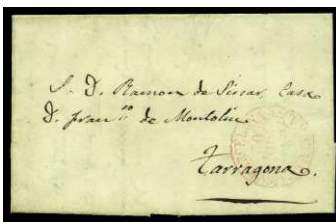 S. D. Ramon de Siscar, Casa
D. Fran.co de Montoliu
Tarragona.